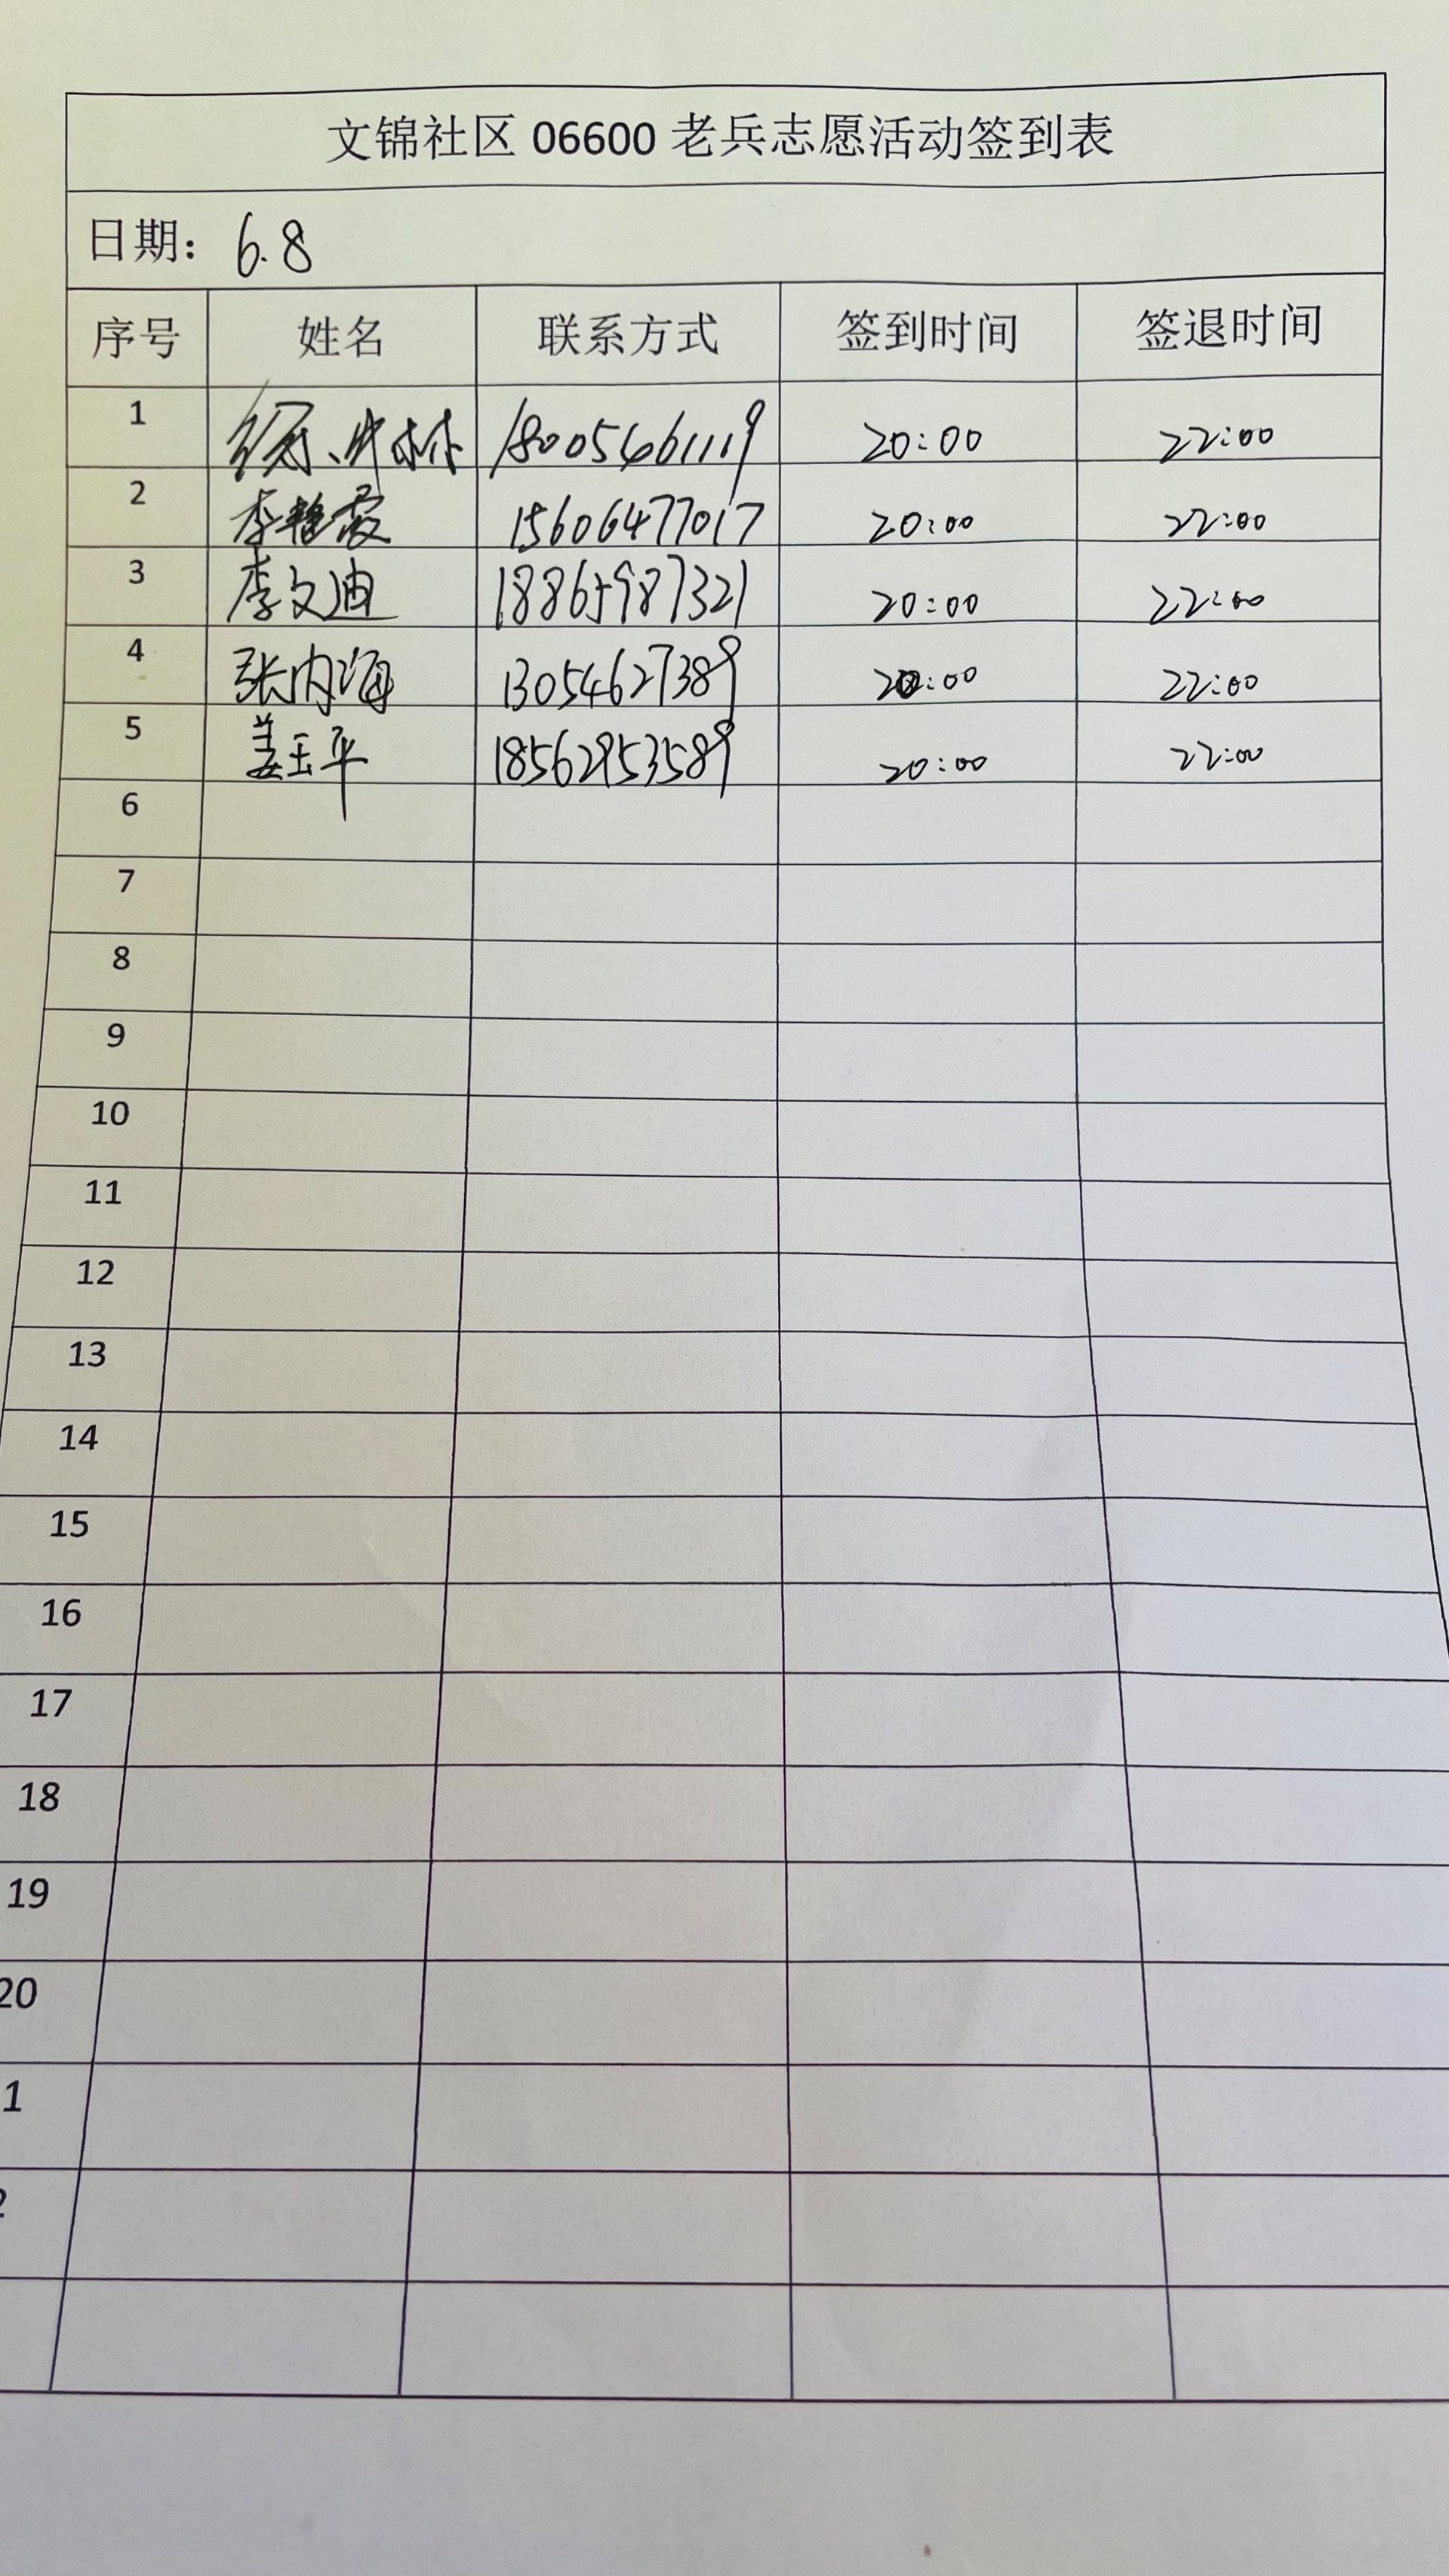 文锦社区 06600 老兵志愿活动签到表
日期： 6.8
序号 姓名 联系方式 签到时间 签退时间
1 18005461119 20:00 22:00
2 李艳霞 15606477017 20:00 22:00
3 李文迪 18865987321 20:00 22:00
4 张内海 13054627389 20:00 22:00
5 姜玉平 18562953589 20:00 22:00
6
7
8
9
10
11
12
13
14
15
16
17
18
19
20
1
2